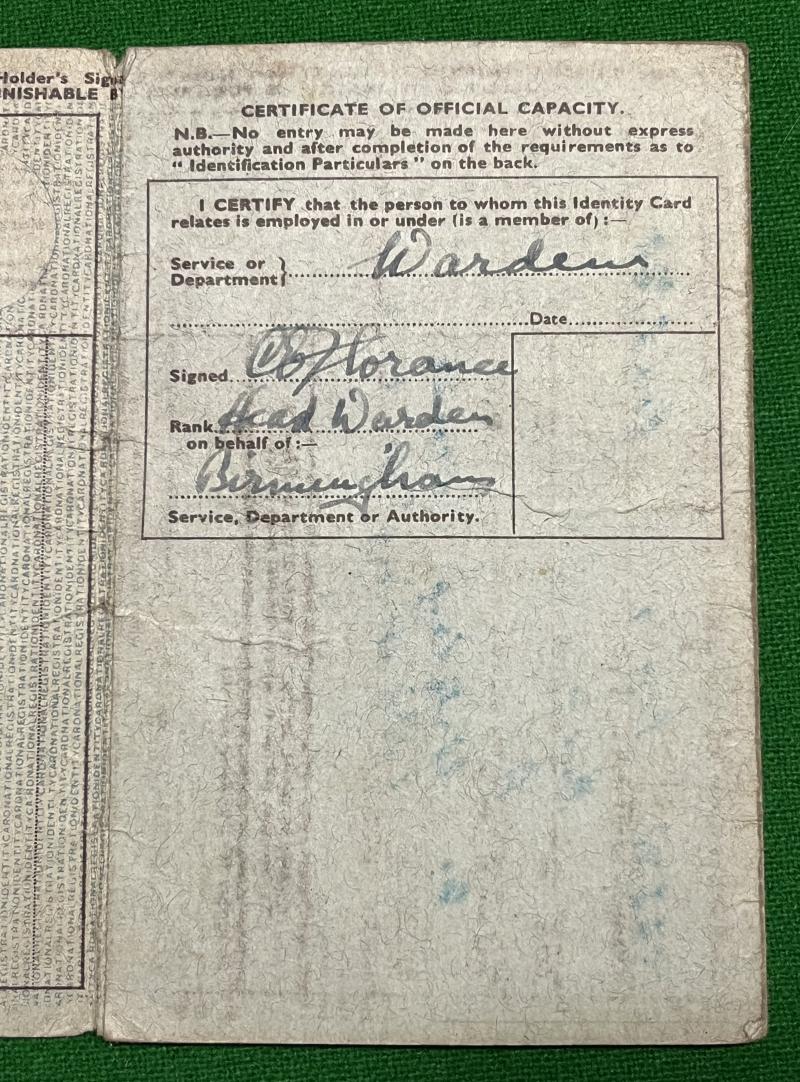 Holder's Sign
NISHABLE B
CERTIFICATE OF OFFICIAL CAPACITY.
N.B.—No entry may be made here without express
authority and after completion of the requirements as to
“ Identification Particulars ” on the back.
I CERTIFY that the person to whom this Identity Card
relates is employed in or under (is a member of) :—
Service or } Wardens
Department
Date
Signed Florance
Rank Head Warden
on behalf of :—
Birmingham
Service, Department or Authority.